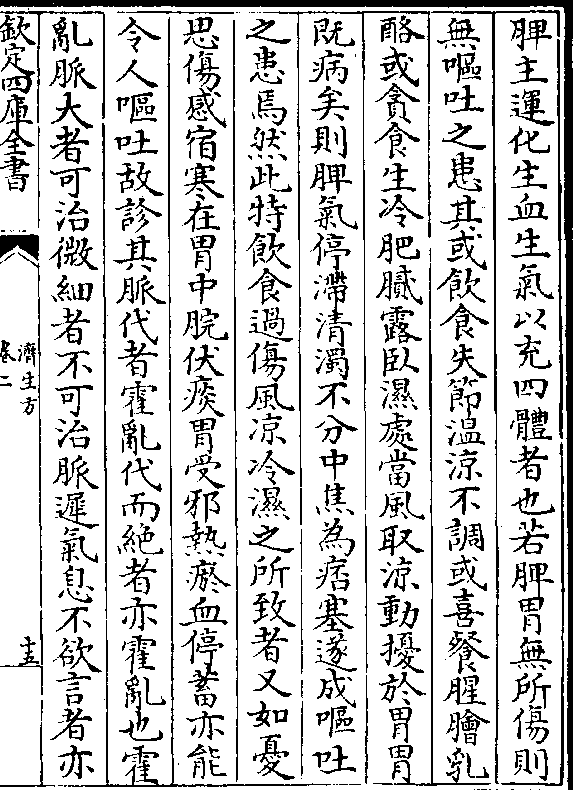 脾主運化生血生氣以充四體者也若脾胃無所傷則
無嘔吐之患其或飲食失節温凉不調或喜餐腥膾乳
酪或貪食生冷肥膩露卧濕處當風取凉動擾於胃胃
既病矣則脾氣停滯清濁不分中焦為痞塞遂成嘔吐
之患焉然此特飲食過傷風凉冷濕之所致者又如憂
思傷感宿寒在胃中脘伏痰胃受邪熱瘀血停蓄亦能
令人嘔吐故診其脈代者霍亂代而絶者亦霍亂也霍
亂脈大者可治微細者不可治脈遲氣息不欲言者亦
欽定四庫全書
濟生方
卷二
十五